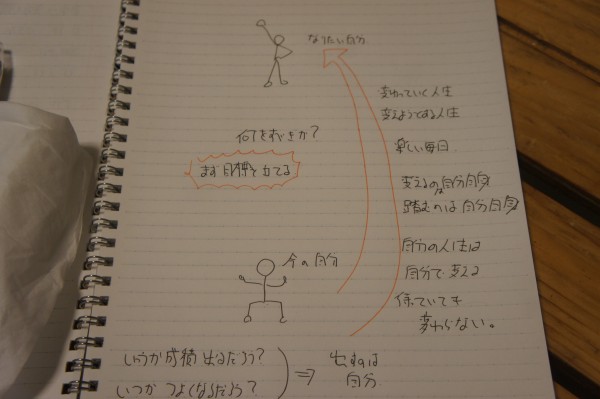 なりたい自分
変わっていく人生
変えようとする人生
何をすべきか?
楽しい毎日
まず目標を立てる
変えるのは自分自身
踏むのは自分自身
今の自分
自分の人生は
自分で変える
待っていても
変わらない。
いつか成績出るだろう?
いつかつよくなるだろう?
⇒ 出すのは
自分